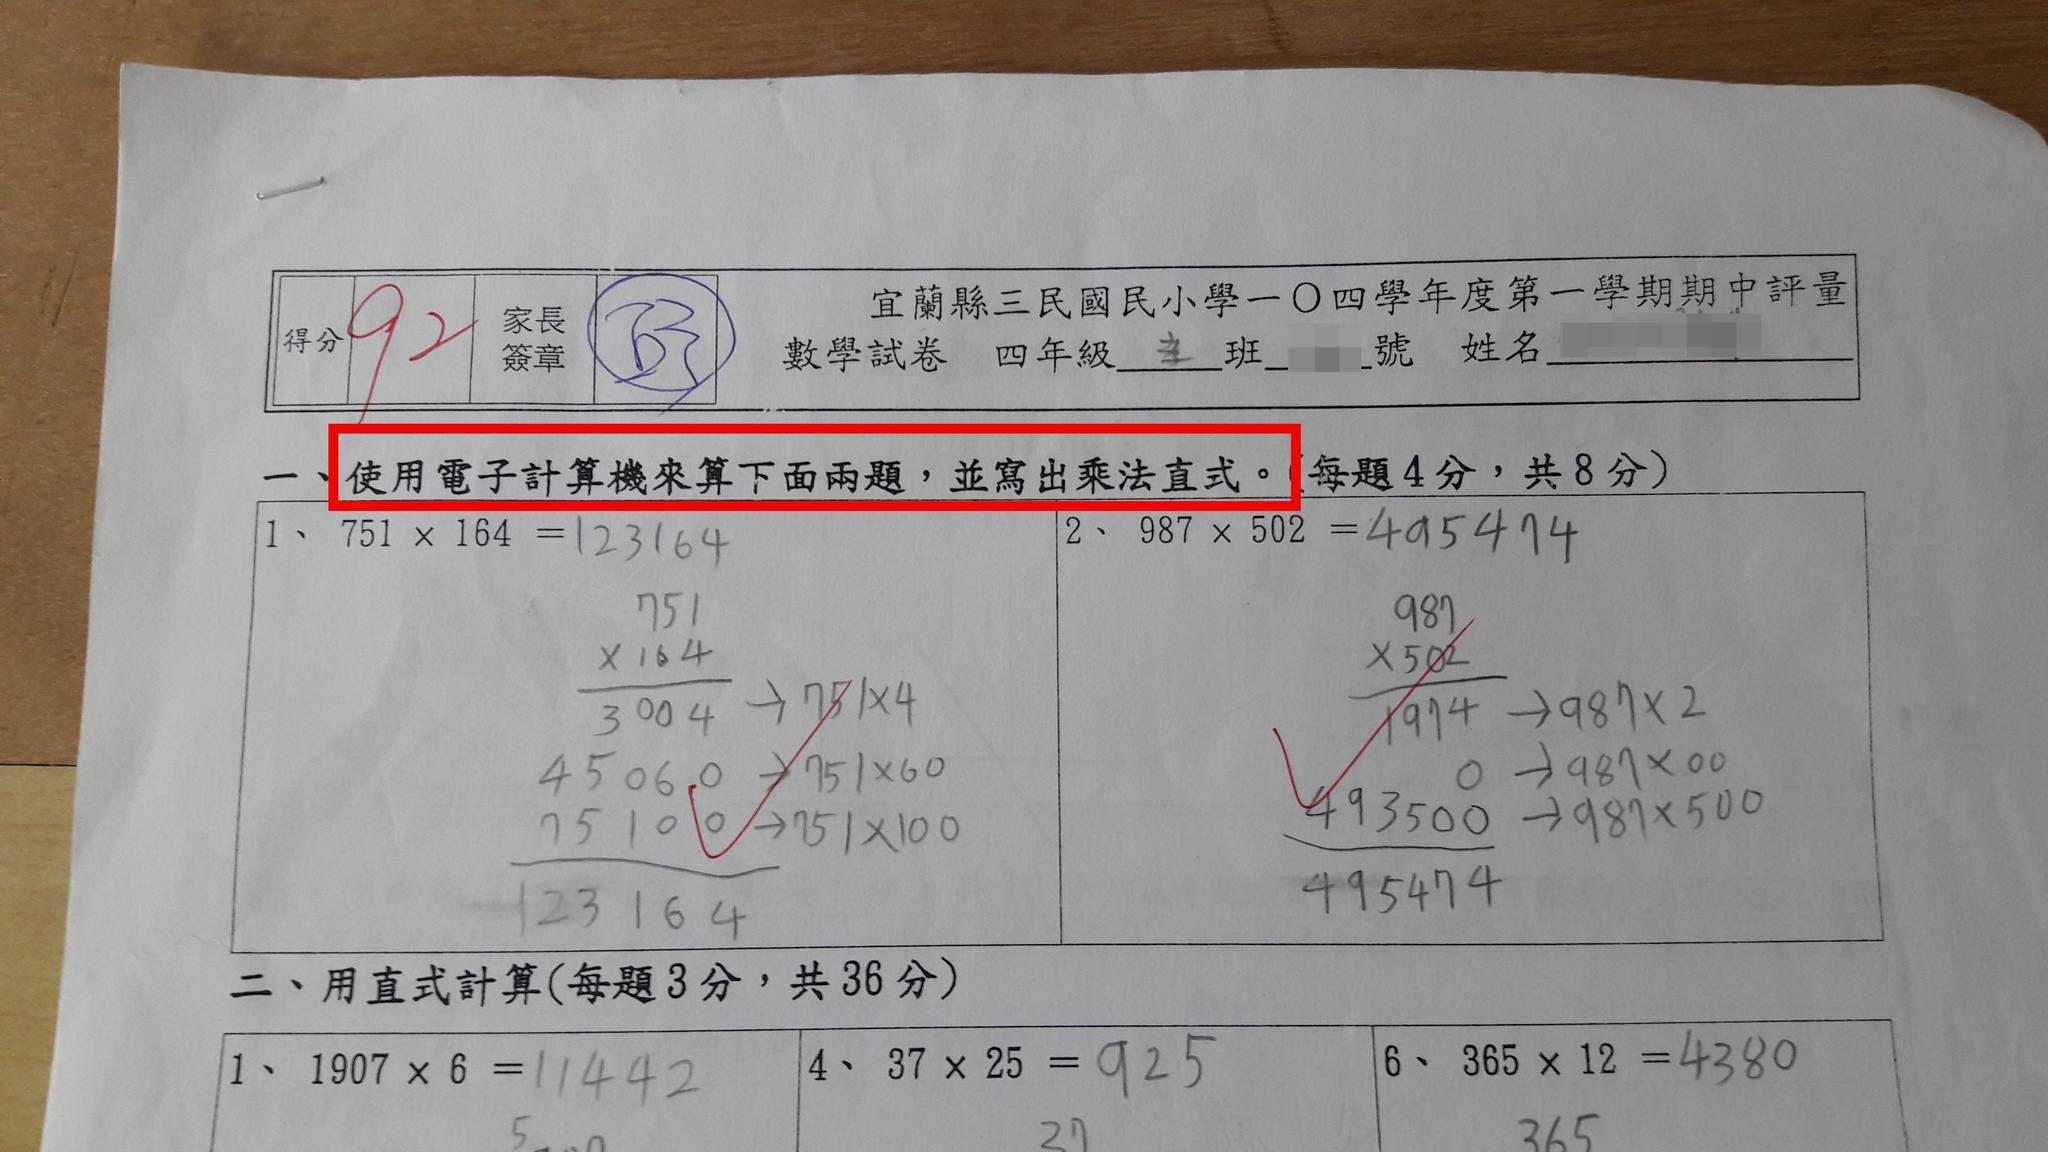 宜蘭縣三民國民小學一〇四學年度第一學期期中評量
得分 92 家長簽章
數學試卷 四年級 班 號 姓名
一、使用電子計算機來算下面兩題，並寫出乘法直式。(每題4分，共8分)
1、 751 × 164 =123164
751
×164
3004 →751×4
45060 →751×60
75100 →751×100
123164
2、 987 × 502 =495474
987
×502
1974 →987×2
0 →987×00
493500 →987×500
495474
二、用直式計算(每題3分，共36分)
1、 1907 × 6 =11442
5
4、 37 × 25 =925
37
6、 365 × 12 =4380
365